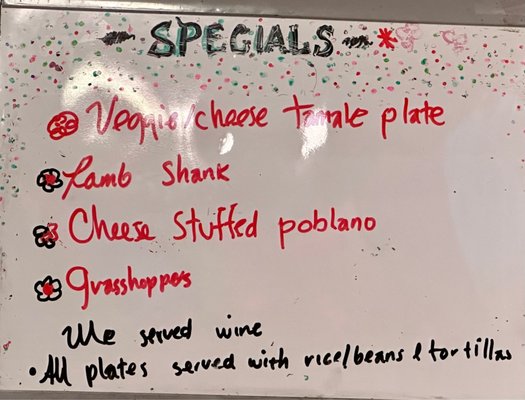 SPECIALS
Veggie/cheese tamale plate
Lamb Shank
Cheese Stuffed poblano
grasshoppers
We served wine
• All plates served with rice/beans & tortillas